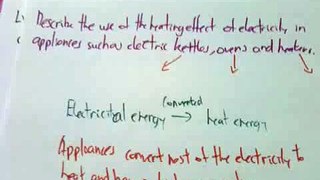 L: Describe the use of the heating effect of electricity in
appliances such as electric kettles, ovens and heaters.
converted
Electricital energy → heat energy
Appliances convert most of the electricity to
heat and